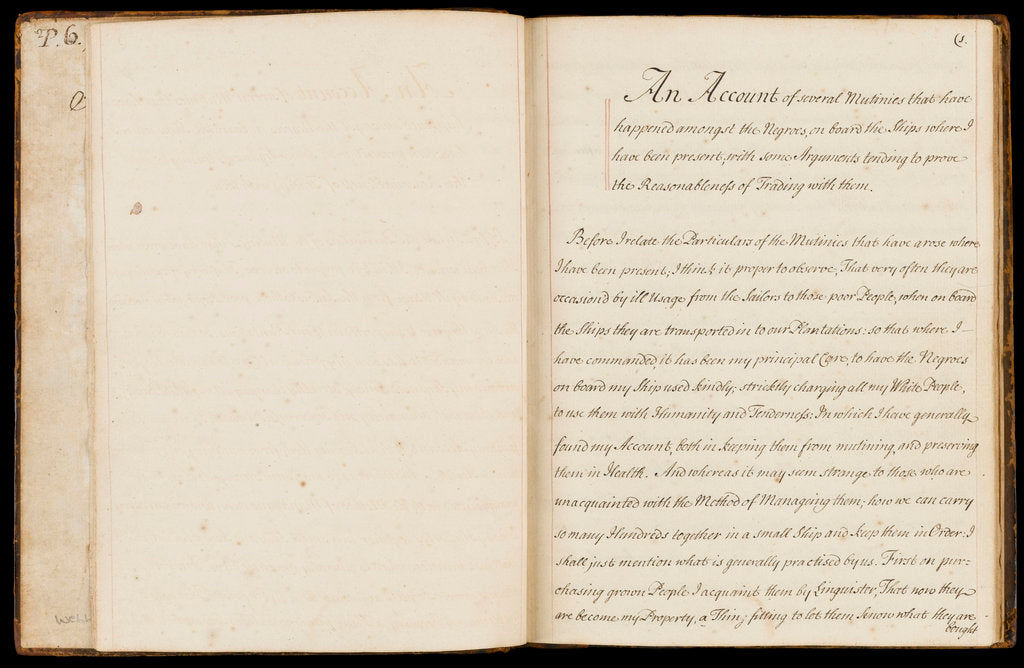 P. 6.
(1.
An Account of several Mutinies that have
happened amongst the Negroes, on board the Ships where I
have been present, with some Arguments tending to prove
the Reasonableness of Trading with them.
Before I relate the Particulars of the Mutinies that have arose where
I have been present; I think it proper to observe, That very often they are
occasion'd by ill Usage from the Sailors to those poor People, when on board
the Ships they are transported in to our Plantations: so that where I
have commanded, it has been my principal Care, to have the Negroes
on board my Ship used kindly; stricktly charging all my White People,
to use them with Humanity and Tenderness: In which I have generally
found my Account, both in keeping them from mutining, and preserving
them in Health. And whereas it may seem strange to those who are
unacquainted with the Method of Manageing them; how we can carry
so many Hundreds together in a small Ship and keep them in Order: I
shall just mention what is generally practised by us. First on pur=
chasing grown People I acquaint them by Linguister, That now they
are become my Property, a Thing fitting to let them know what they are
bought